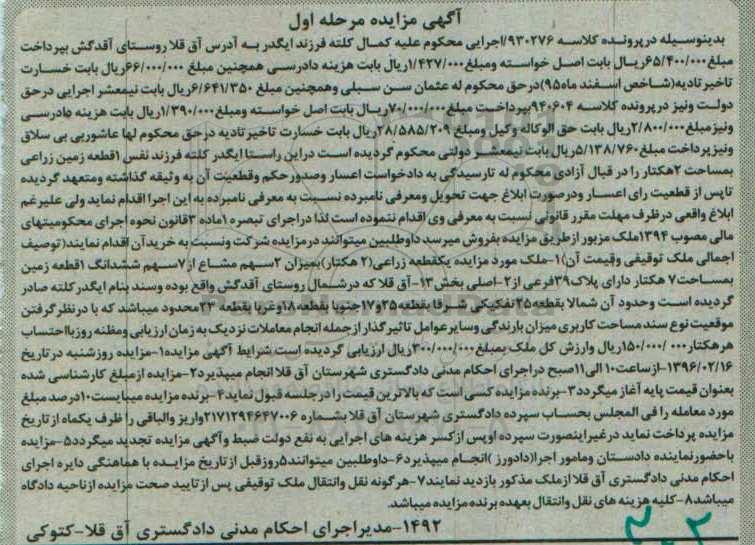 آگهی مزایده مرحله اول
بدینوسیله در پرونده کلاسه ۹۳۰۲۷۶/اجرایی محکوم علیه کمال کلته فرزند ایگدر به آدرس آق قلا روستای آقدگش بپرداخت
مبلغ ۶۵/۴۰۰/۰۰۰ریال بابت اصل خواسته ومبلغ ۱/۴۲۷/۰۰۰ریال بابت هزینه دادرسی همچنین مبلغ ۶۶/۰۰۰/۰۰۰ریال بابت خسارت
تاخیر تادیه(شاخص اسفند ماه۹۵)درحق محکوم له عثمان سن سبلی وهمچنین مبلغ ۶/۶۴۱/۳۵۰ریال بابت نیمعشر اجرایی درحق
دولت ونیز درپرونده کلاسه ۹۴۰۶۰۴بپرداخت مبلغ۷۰/۰۰۰/۰۰۰ریال بابت اصل خواسته ومبلغ۱/۳۹۰/۰۰۰ریال بابت هزینه دادرسی
ونیزمبلغ۲/۸۰۰/۰۰۰ریال بابت حق الوکاله وکیل ومبلغ ۲۸/۵۸۵/۲۰۹ریال بابت خسارت تاخیر تادیه درحق محکوم لها عاشوربی بی سلاق
ونیزپرداخت مبلغ۵/۱۳۸/۷۶۰ریال بابت نیمعشر دولتی محکوم گردیده است دراین راستا ایگدر کلته فرزند نفس ۱قطعه زمین زراعی
بمساحت ۲هکتار را در قبال آزادی محکوم له تارسیدگی به دادخواست اعسار وصدورحکم وقطعیت آن به وثیقه گذاشته ومتعهد گردیده
تاپس از قطعیت رای اعسار ودرصورت ابلاغ جهت تحویل ومعرفی نامبرده نسبت به معرفی نامبرده به این اجرا اقدام نماید ولی علیرغم
ابلاغ واقعی درظرف مهلت مقرر قانونی نسبت به معرفی وی اقدام ننموده است لذا دراجرای تبصره ۱ماده ۳قانون نحوه اجرای محکومیتهای
مالی مصوب ۱۳۹۴ملک مزبور ازطریق مزایده بفروش میرسد داوطلبین میتوانند درمزایده شرکت ونسبت به خریدآن اقدام نمایند(توصیف
اجمالی ملک توقیفی وقیمت آن)۱-ملک مورد مزایده یکقطعه زراعی(۲ هکتار)بمیزان ۲سهم مشاع از۷سهم ششدانگ ۱قطعه زمین
بمساحت۷ هکتار دارای پلاک۳۹فرعی از۲-اصلی بخش۱۳-آق قلا که درشمال روستای آقدگش واقع بوده وسند بنام ایگدر کلته صادر
گردیده است وحدود آن شمالا بقطعه۲۵تفکیکی شرقا بقطعه۲۵و۱۷جنوبا بقطعه۱۸وغربا بقطعه ۲۳محدود میباشد که با درنظرگرفتن
موقعیت نوع سند مساحت کاربری میزان بارندگی وسایرعوامل تاثیرگذار ازجمله انجام معاملات نزدیک به زمان ارزیابی ومظنه روزبااحتساب
هرهکتار۱۵۰/۰۰۰/۰۰۰ریال وارزش کل ملک بمبلغ۳۰۰/۰۰۰/۰۰۰ریال ارزیابی گردیده است شرایط آگهی مزایده۱-مزایده روزشنبه درتاریخ
۱۳۹۶/۰۲/۱۶-ازساعت۱۰الی۱۱صبح دراجرای احکام مدنی دادگستری شهرستان آق قلاانجام میپذیرد۲-مزایده ازمبلغ کارشناسی شده
بعنوان قیمت پایه آغاز میگردد۳-برنده مزایده کسی است که بالاترین قیمت رادرجلسه قبول نماید۴-برنده مزایده میبایست۱۰درصد مبلغ
مورد معامله را فی المجلس بحساب سپرده دادگستری شهرستان آق قلا بشماره ۲۱۷۱۲۹۴۶۴۷۰۰۶واریز والباقی را ظرف یکماه ازتاریخ
مزایده پرداخت نماید درغیراینصورت سپرده اوپس ازکسر هزینه های اجرایی به نفع دولت ضبط وآگهی مزایده تجدید میگردد۵-مزایده
باحضورنماینده دادستان ومامور اجرا(دادورز )انجام میپذیرد۶-داوطلبین میتوانند۵روزقبل ازتاریخ مزایده با هماهنگی دایره اجرای
احکام مدنی دادگستری آق قلا ازملک مذکور بازدید نمایند۷-هرگونه نقل وانتقال ملک توقیفی پس ازتایید صحت مزایده ازناحیه دادگاه
میباشد۸-کلیه هزینه های نقل وانتقال بعهده برنده مزایده میباشد.
۱۴۹۲-مدیراجرای احکام مدنی دادگستری آق قلا-کتوکی